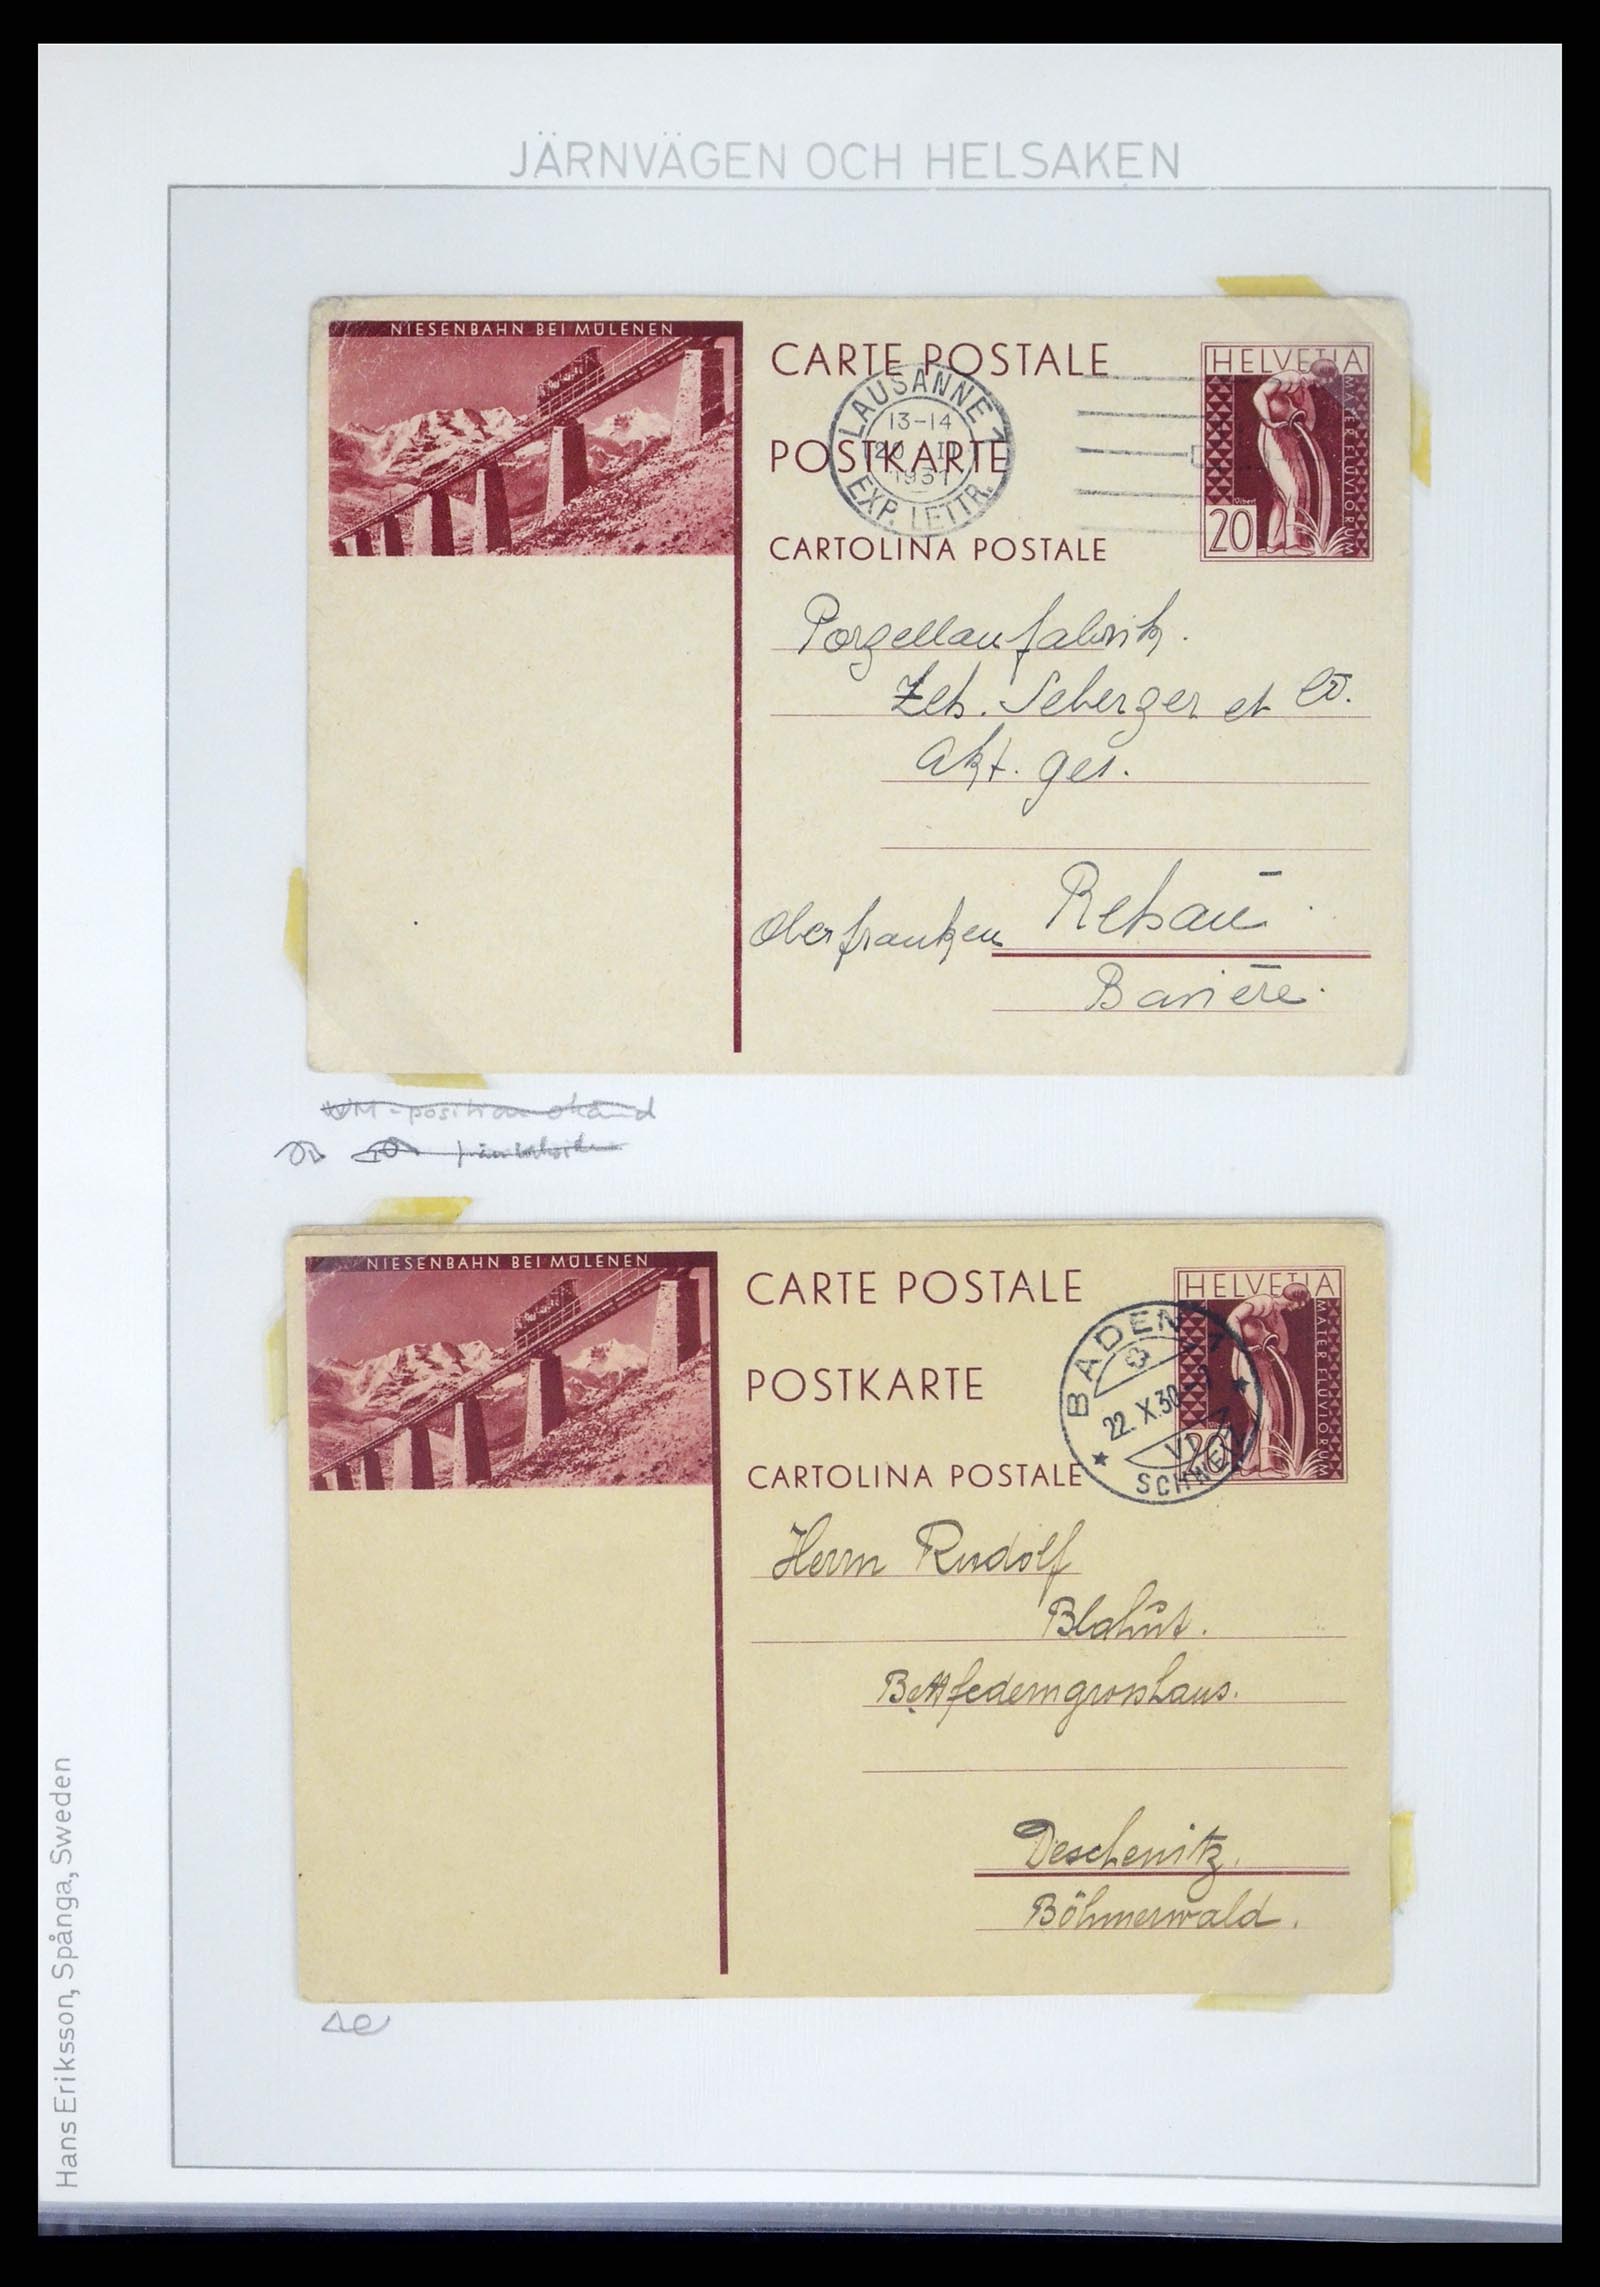 JÄRNVÄGEN OCH HELSAKEN
NIESENBAHN BEI MÜLENEN
CARTE POSTALE
POSTKARTE
CARTOLINA POSTALE
LAUSANNE 1
13-14
1931
EXP. LETTR.
HELVETIA
MATER FLUVIORUM
20
Porzellanfabrik.
Zeh. Scherzer et Co.
Akt. ges.
Rehau
Oberfranken
Bavière.
WM-position okänd
NIESENBAHN BEI MÜLENEN
CARTE POSTALE
POSTKARTE
CARTOLINA POSTALE
BADEN 1
22. X. 30
VI
SCHWEIZ
HELVETIA
MATER FLUVIORUM
20
Herrn Rudolf
Blahut.
Bettfederngrosshaus.
Deschenitz.
Böhmerwald.
Hans Eriksson, Spånga, Sweden